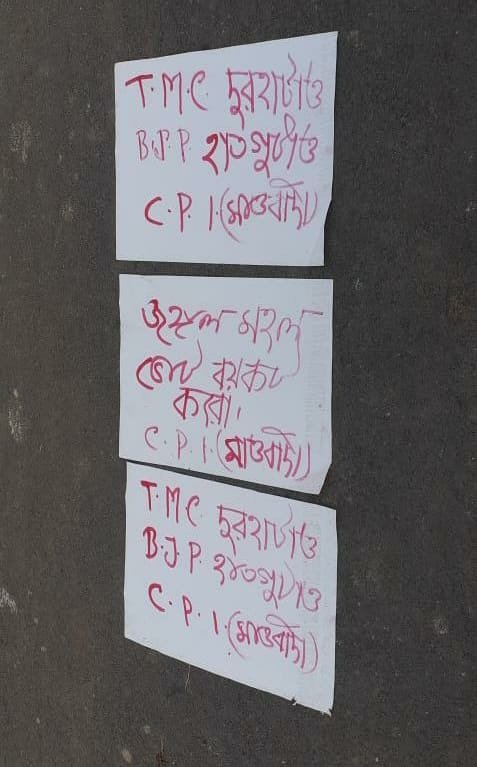 T.M.C. দুরহাটাও
B.J.P. হাতগুটাও
C.P.I.(মাওবাদী)
জঙ্গল মহল
ভোট বয়কট
করো।
C.P.I.(মাওবাদী)
T.M.C. দুরহাটাও
B.J.P. হাতগুটাও
C.P.I.(মাওবাদী)